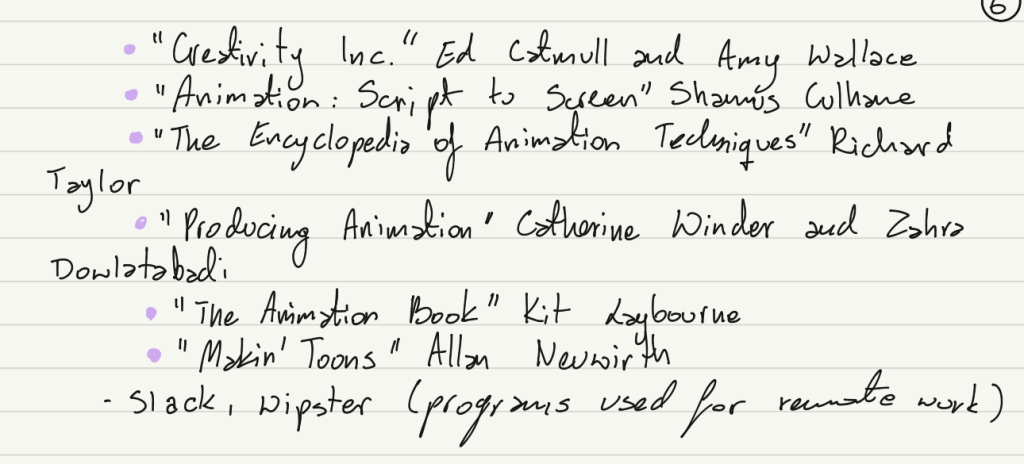 6
• "Creativity Inc." Ed Catmull and Amy Wallace
• "Animation: Script to Screen" Shamus Culhane
• "The Encyclopedia of Animation Techniques" Richard
Taylor
• "Producing Animation" Catherine Winder and Zahra
Dowlatabadi
• "The Animation Book" Kit Laybourne
• "Makin' Toons" Allan Neuwirth
- Slack, Wipster (programs used for remote work)